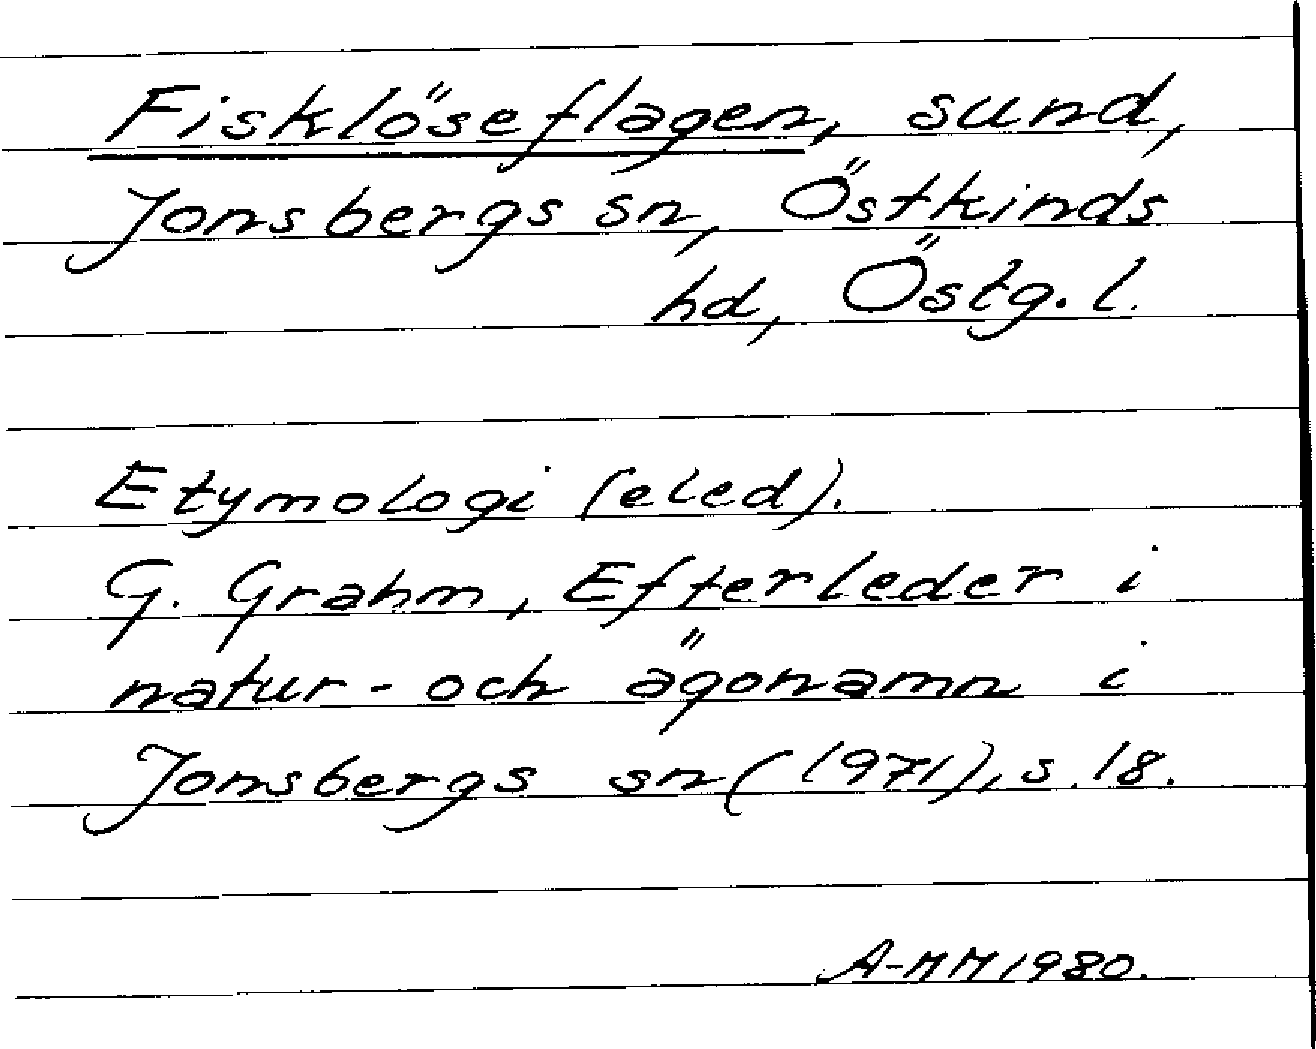 Fisklöseflagen, sund,
Jonsbergs sn, Östkinds
hd, Östg. l.
Etymologi (eled).
G. Grahm, Efterleder i
natur- och ägonamn i
Jonsbergs sn (1971), s. 18.
A-MM 1980.